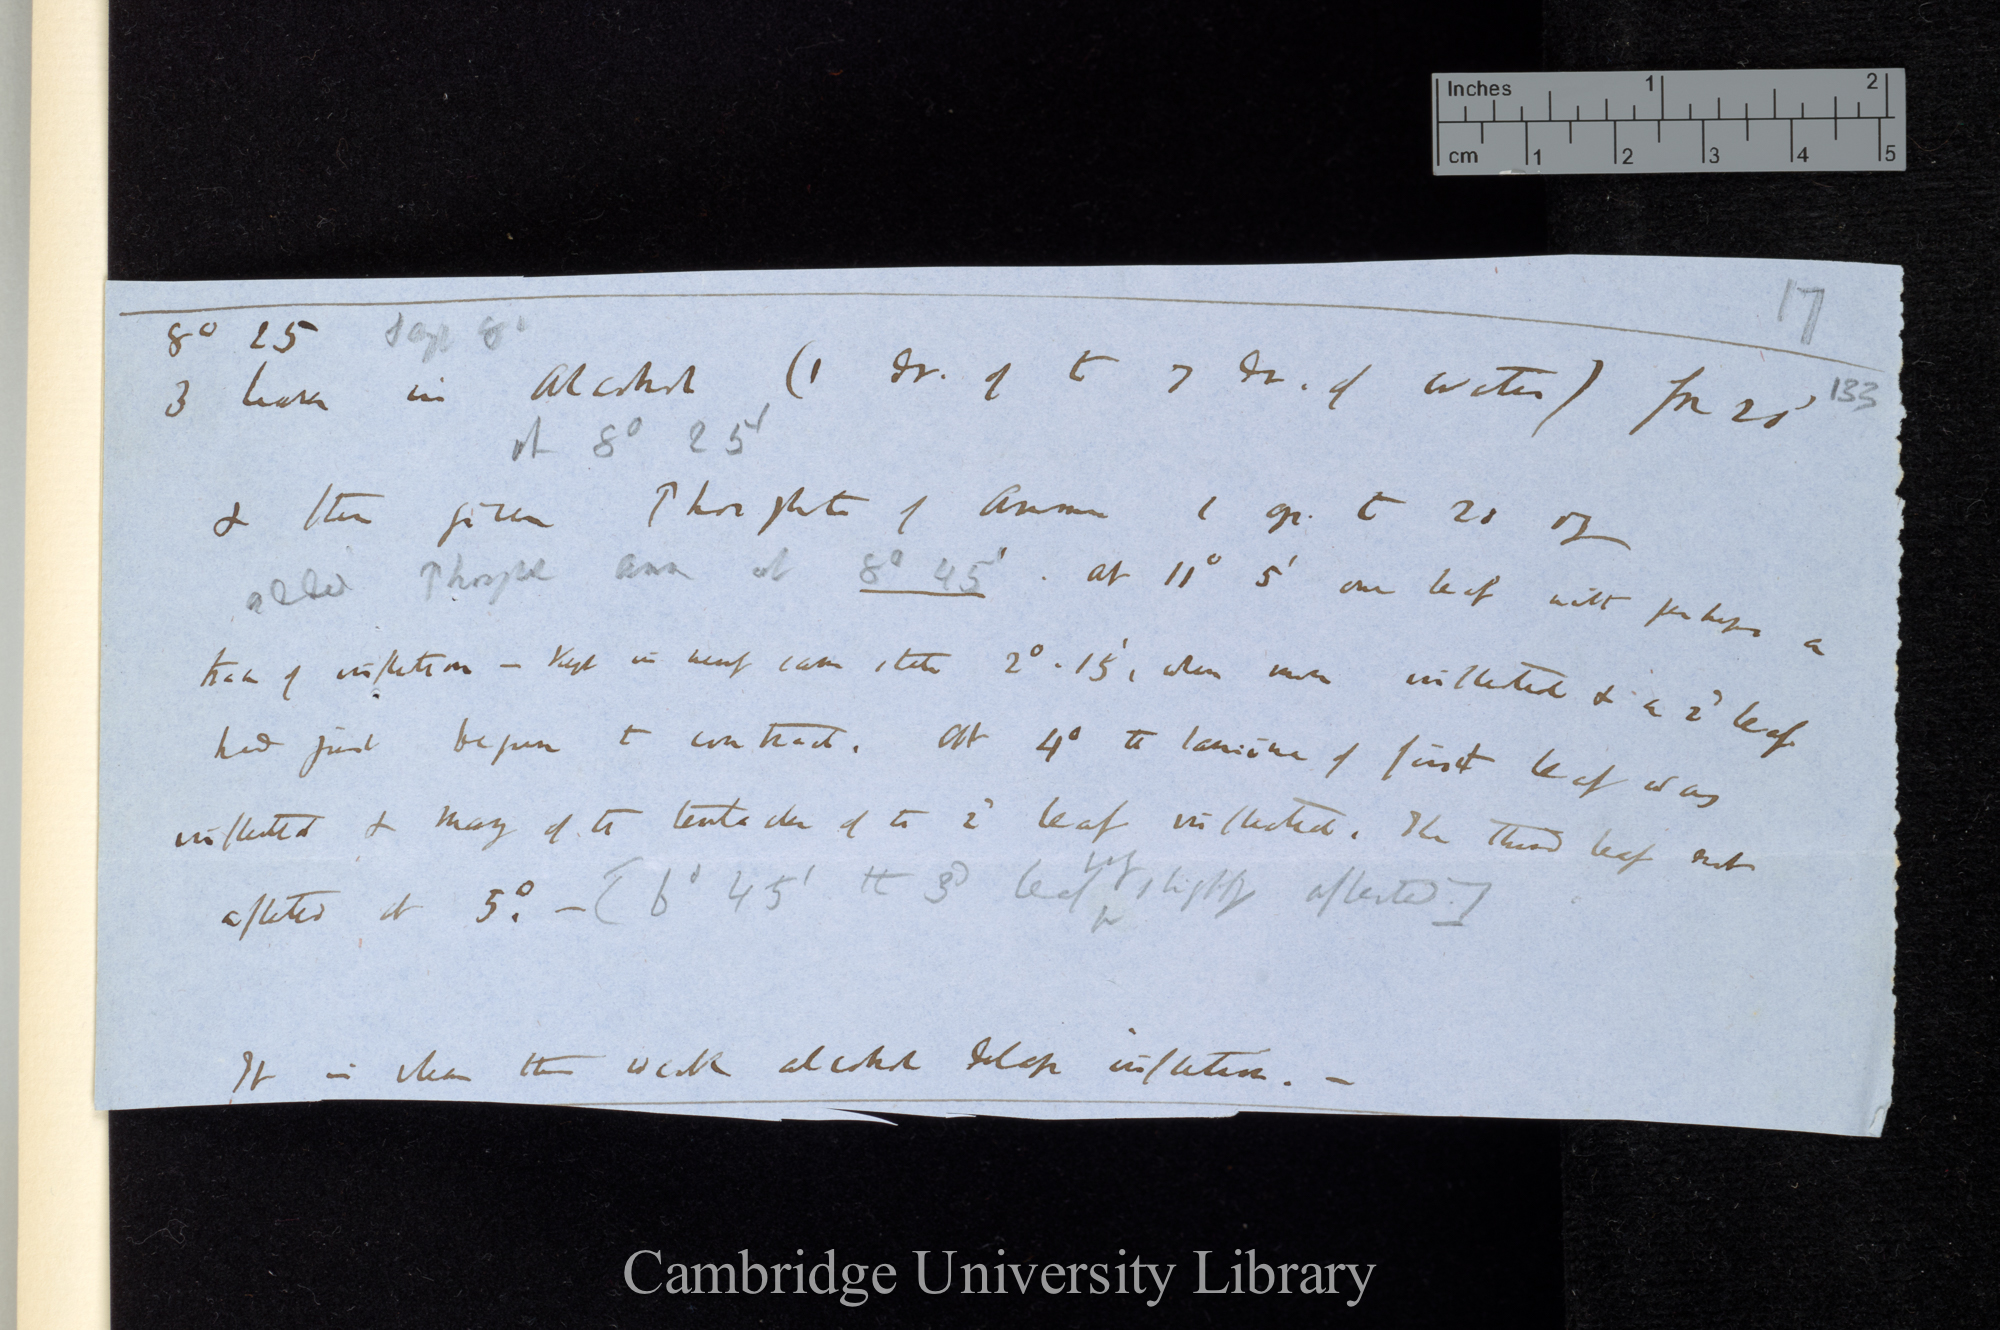 Inches 1 2
cm 1 2 3 4 5
17
8° 25 Sept 8'
3 leaves in Alcohol (1 Dr. of to 7 Dr. of water) for 20'
133
at 8° 25'
& then given Phosphate of Ammon 1 gr. to 20 oz
added Phosph Amm at 8° 45' . at 11° 5' one leaf with perhaps a
trace of inflection — kept in nearly same state 2°. 15', when more inflected & in a 2d leaf
had just begun to contract. At 4° the lamina of first leaf was
inflected & many of the tentacles of the 2d leaf inflected. The third leaf not
affected at 5°. — [6° 45' the 3d leaf very slightly affected.]
It is clear that weak alcohol delays inflection. —
Cambridge University Library